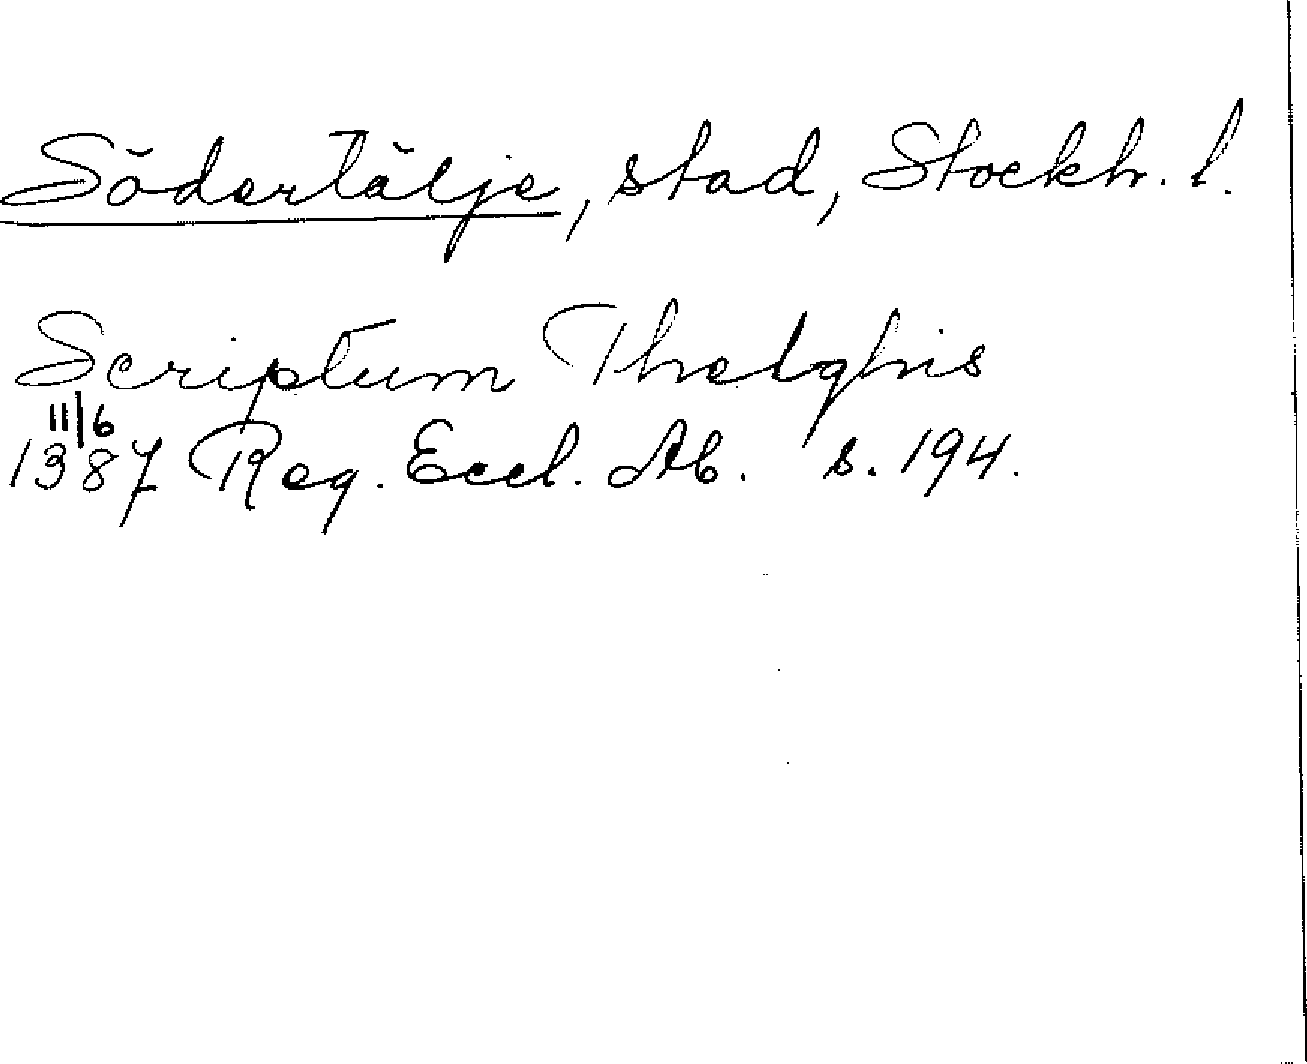 Södertälje, stad, Stockh. l.
Scriptum Thelghis
11/6
1387 Reg. Eccl. Ab. s. 194.